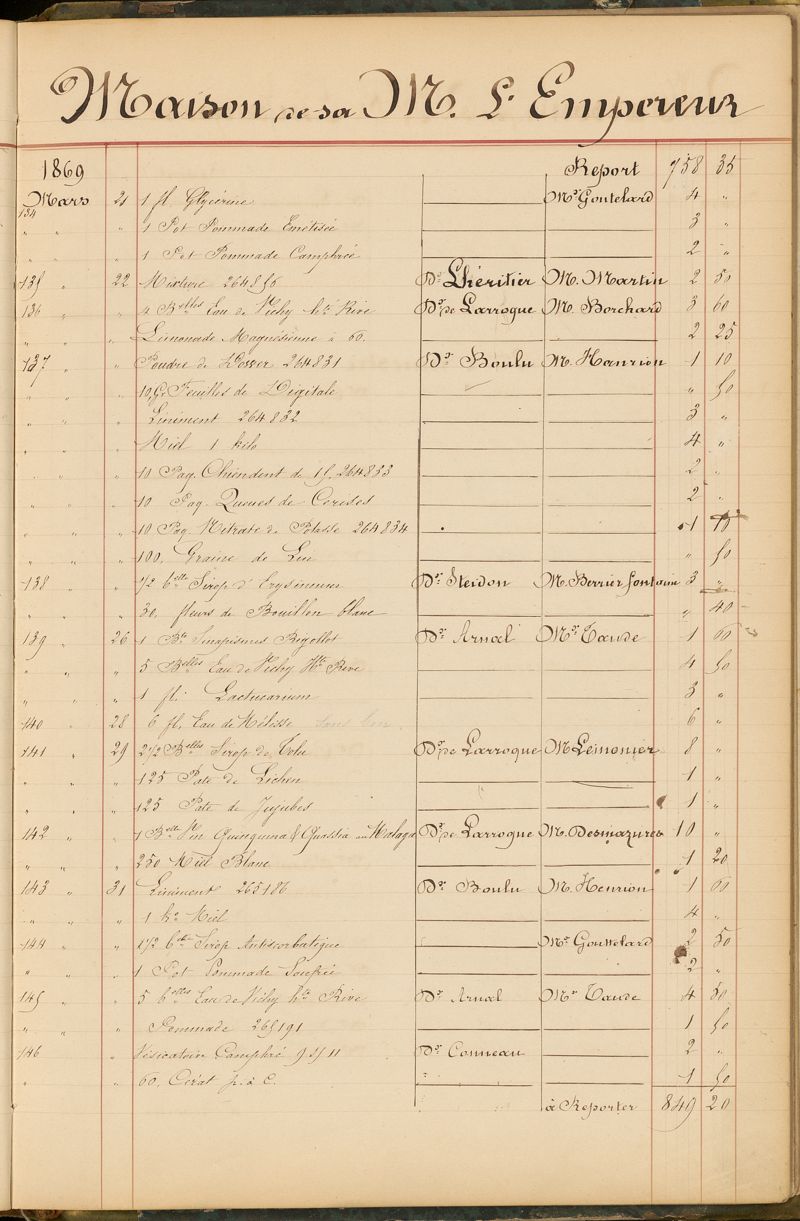 Maison de sa M. L' Empereur
1869 Report 758 35
Mars 21 1 fl. Glycérine Mr Goutelard 4 "
134 " " " 1 Pot Pommade Emétisée 3 "
" 1 Pot Pommade Camphrée 2 "
135 " 22 Mixture 264856 Dr Lhéritier M. Martin 2 50
136 " " 4 Belles Eau de Vichy hte Rive Dr de Larroque M. Borchard 3 60
" " " Limonade Magnésienne à 60. 2 25
137 " " Poudre de Dower 264831 Dr Boulu M. Hanrion 1 10
" " " 10 Gr Feuilles de Digitale " 50
" " " Liniment 264832 3 "
" " " Miel 1 kilo 4 "
" " " 10 Paq. Chiendent de 15. 264833 2 "
" " " 10 Paq. Queues de Cerises 2 "
" " " 10 Paq. Nitrate de Potasse 264834 1 10
" " " 100. Graine de Lin " 50
138 " " 1/2 belle Sirop d'Erysimum Dr Steidon M. Berrier fontaine 3 "
" " " 30. fleurs de Bouillon blanc " 40
139 " 26 1 Bte Sinapismes Rigollot Dr Arnal Mr Taude 1 60
" " " 5 Belles Eau de Vichy Hte Rive 4 50
" " " 1 fl. Lactucarium 3 "
140 " 28 6 fl. Eau de Mélisse 6 "
141 " 29 2 1/2 Belles Sirop de Tolu Dr de Larroque M Lemonier 8 "
" " " 125 Pate de Lichen 1 "
" " " 125 Pate de Jujubes 1 "
142 " " 1 Belle Vin Quinquina & Quassia au Malaga Dr de Larroque M. Desmazures 10 "
" " " 250 Miel Blanc 1 20
143 " 31 Liniment 265186 Dr Boulu M. Henrion 1 60
" " " 1 ko Miel 4 "
144 " " 1/2 belle Sirop Antiscorbutique Mr Gouttelard 2 50
" " " 1 Pot Pommade Soufrée 2 "
145 " " 5 belles Eau de Vichy hte Rive Dr Arnal Mr Taude 4 50
" " " Pommade 265191 1 50
146 " Vésicatoire Camphré 9 s/ 11 Dr Conneau 2 "
" " 60. Cérat p. à C. " 1 50
à Reporter 849 20